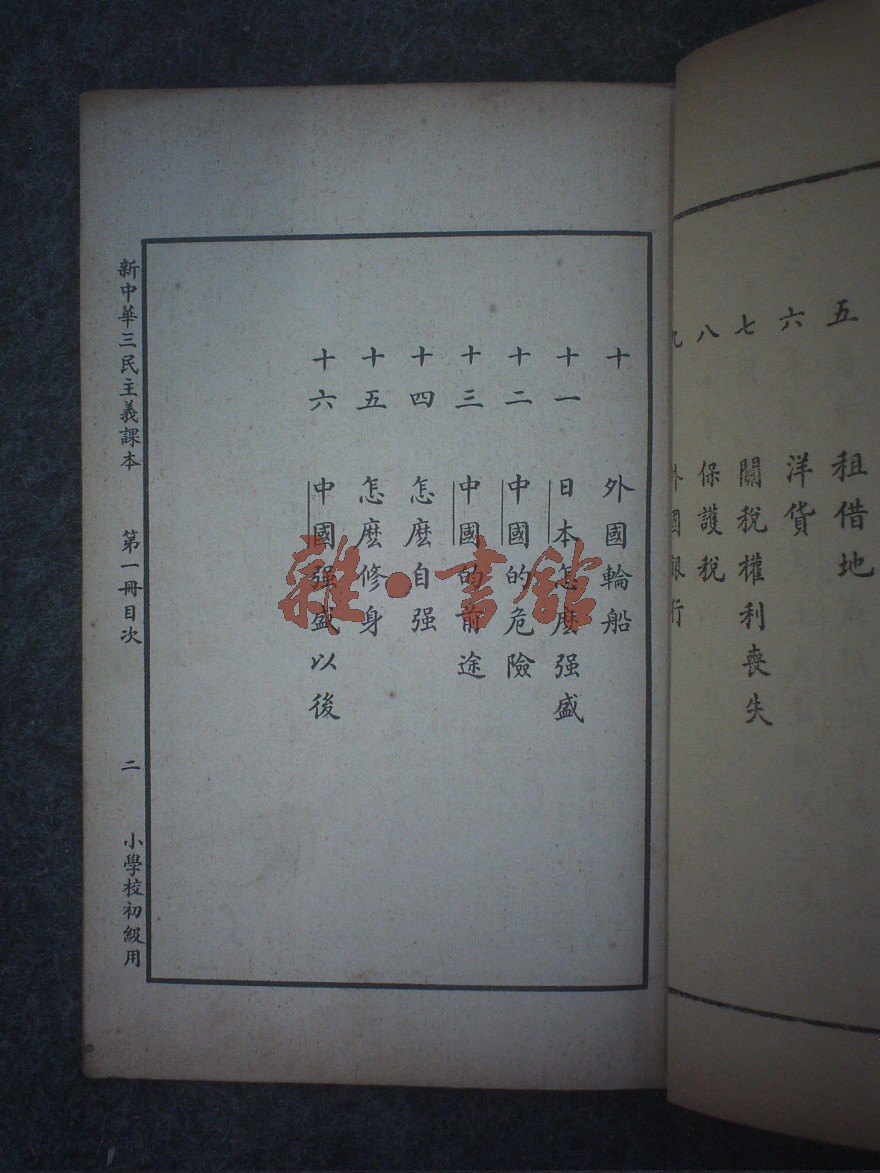 五 租借地
六 洋貨
七 關稅權利喪失
八 保護稅
九 外國銀行
十 外國輪船
十一 日本怎麼强盛
十二 中國的危險
十三 中國的前途
十四 怎麼自强
十五 怎麼修身
十六 中國强盛以後
新中華三民主義課本 第一冊目次 二 小學校初級用
雜·書館